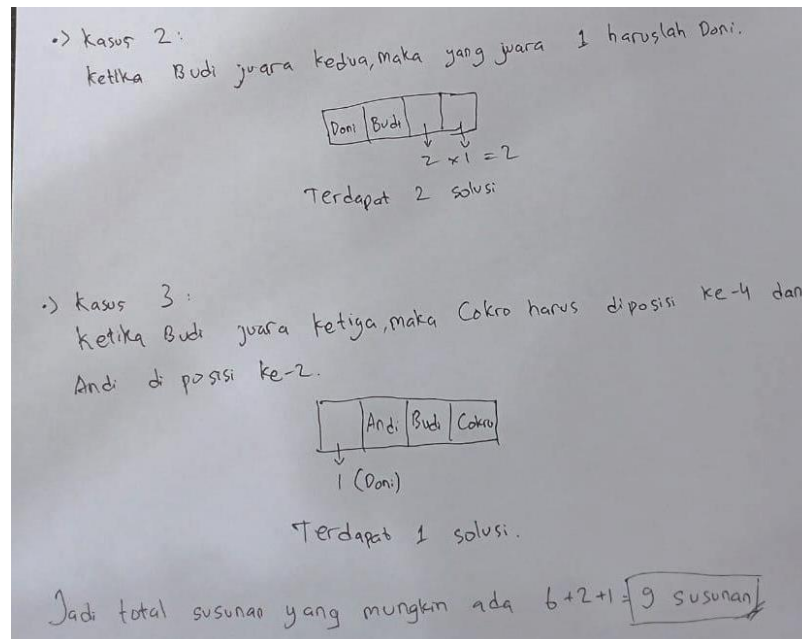 •> Kasus 2:
Ketika Budi juara kedua, maka yang juara 1 haruslah Doni.
Doni Budi
2 x 1 = 2
Terdapat 2 solusi
•> Kasus 3:
Ketika Budi juara ketiga, maka Cokro harus diposisi ke-4 dan
Andi di posisi ke-2.
Andi Budi Cokro
1 (Doni)
Terdapat 1 solusi.
Jadi total susunan yang mungkin ada 6+2+1= 9 susunan